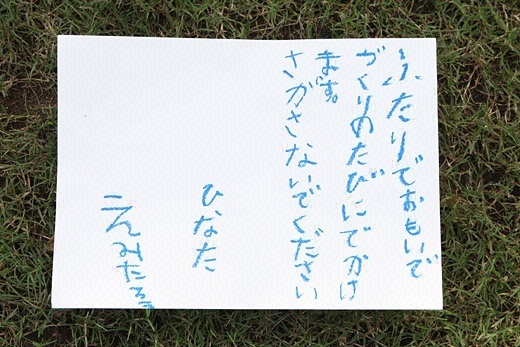 ふたりでおもいで
づくりのたびにでかけ
ます。
さがさないでください
ひなた